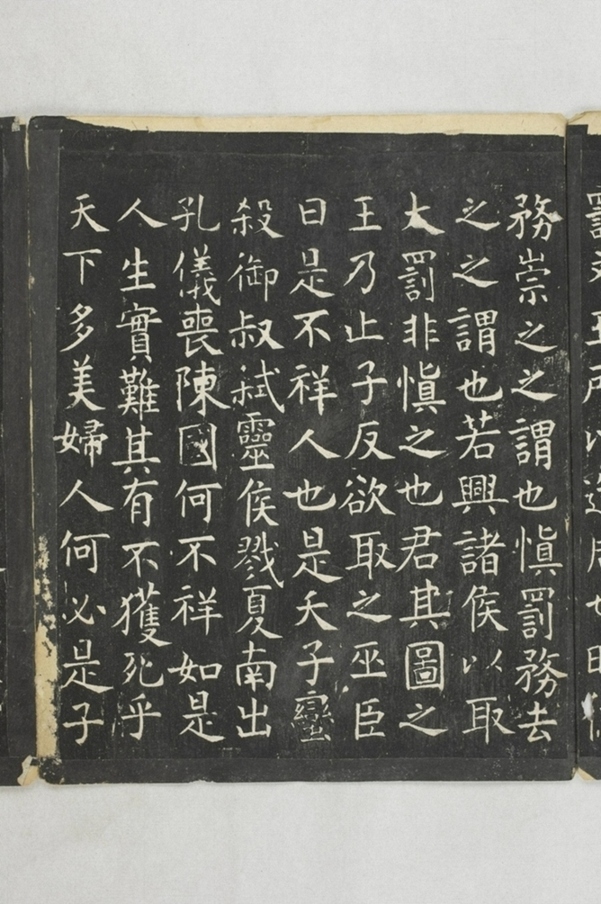 罰文王所以造周也明德
務崇之之謂也慎罰務去
之之謂也若興諸侯以取
大罰非慎之也君其圖之
王乃止子反欲取之巫臣
曰是不祥人也是夭子蠻
殺御叔弒靈侯戮夏南出
孔儀喪陳國何不祥如是
人生實難其有不獲死乎
天下多美婦人何必是子